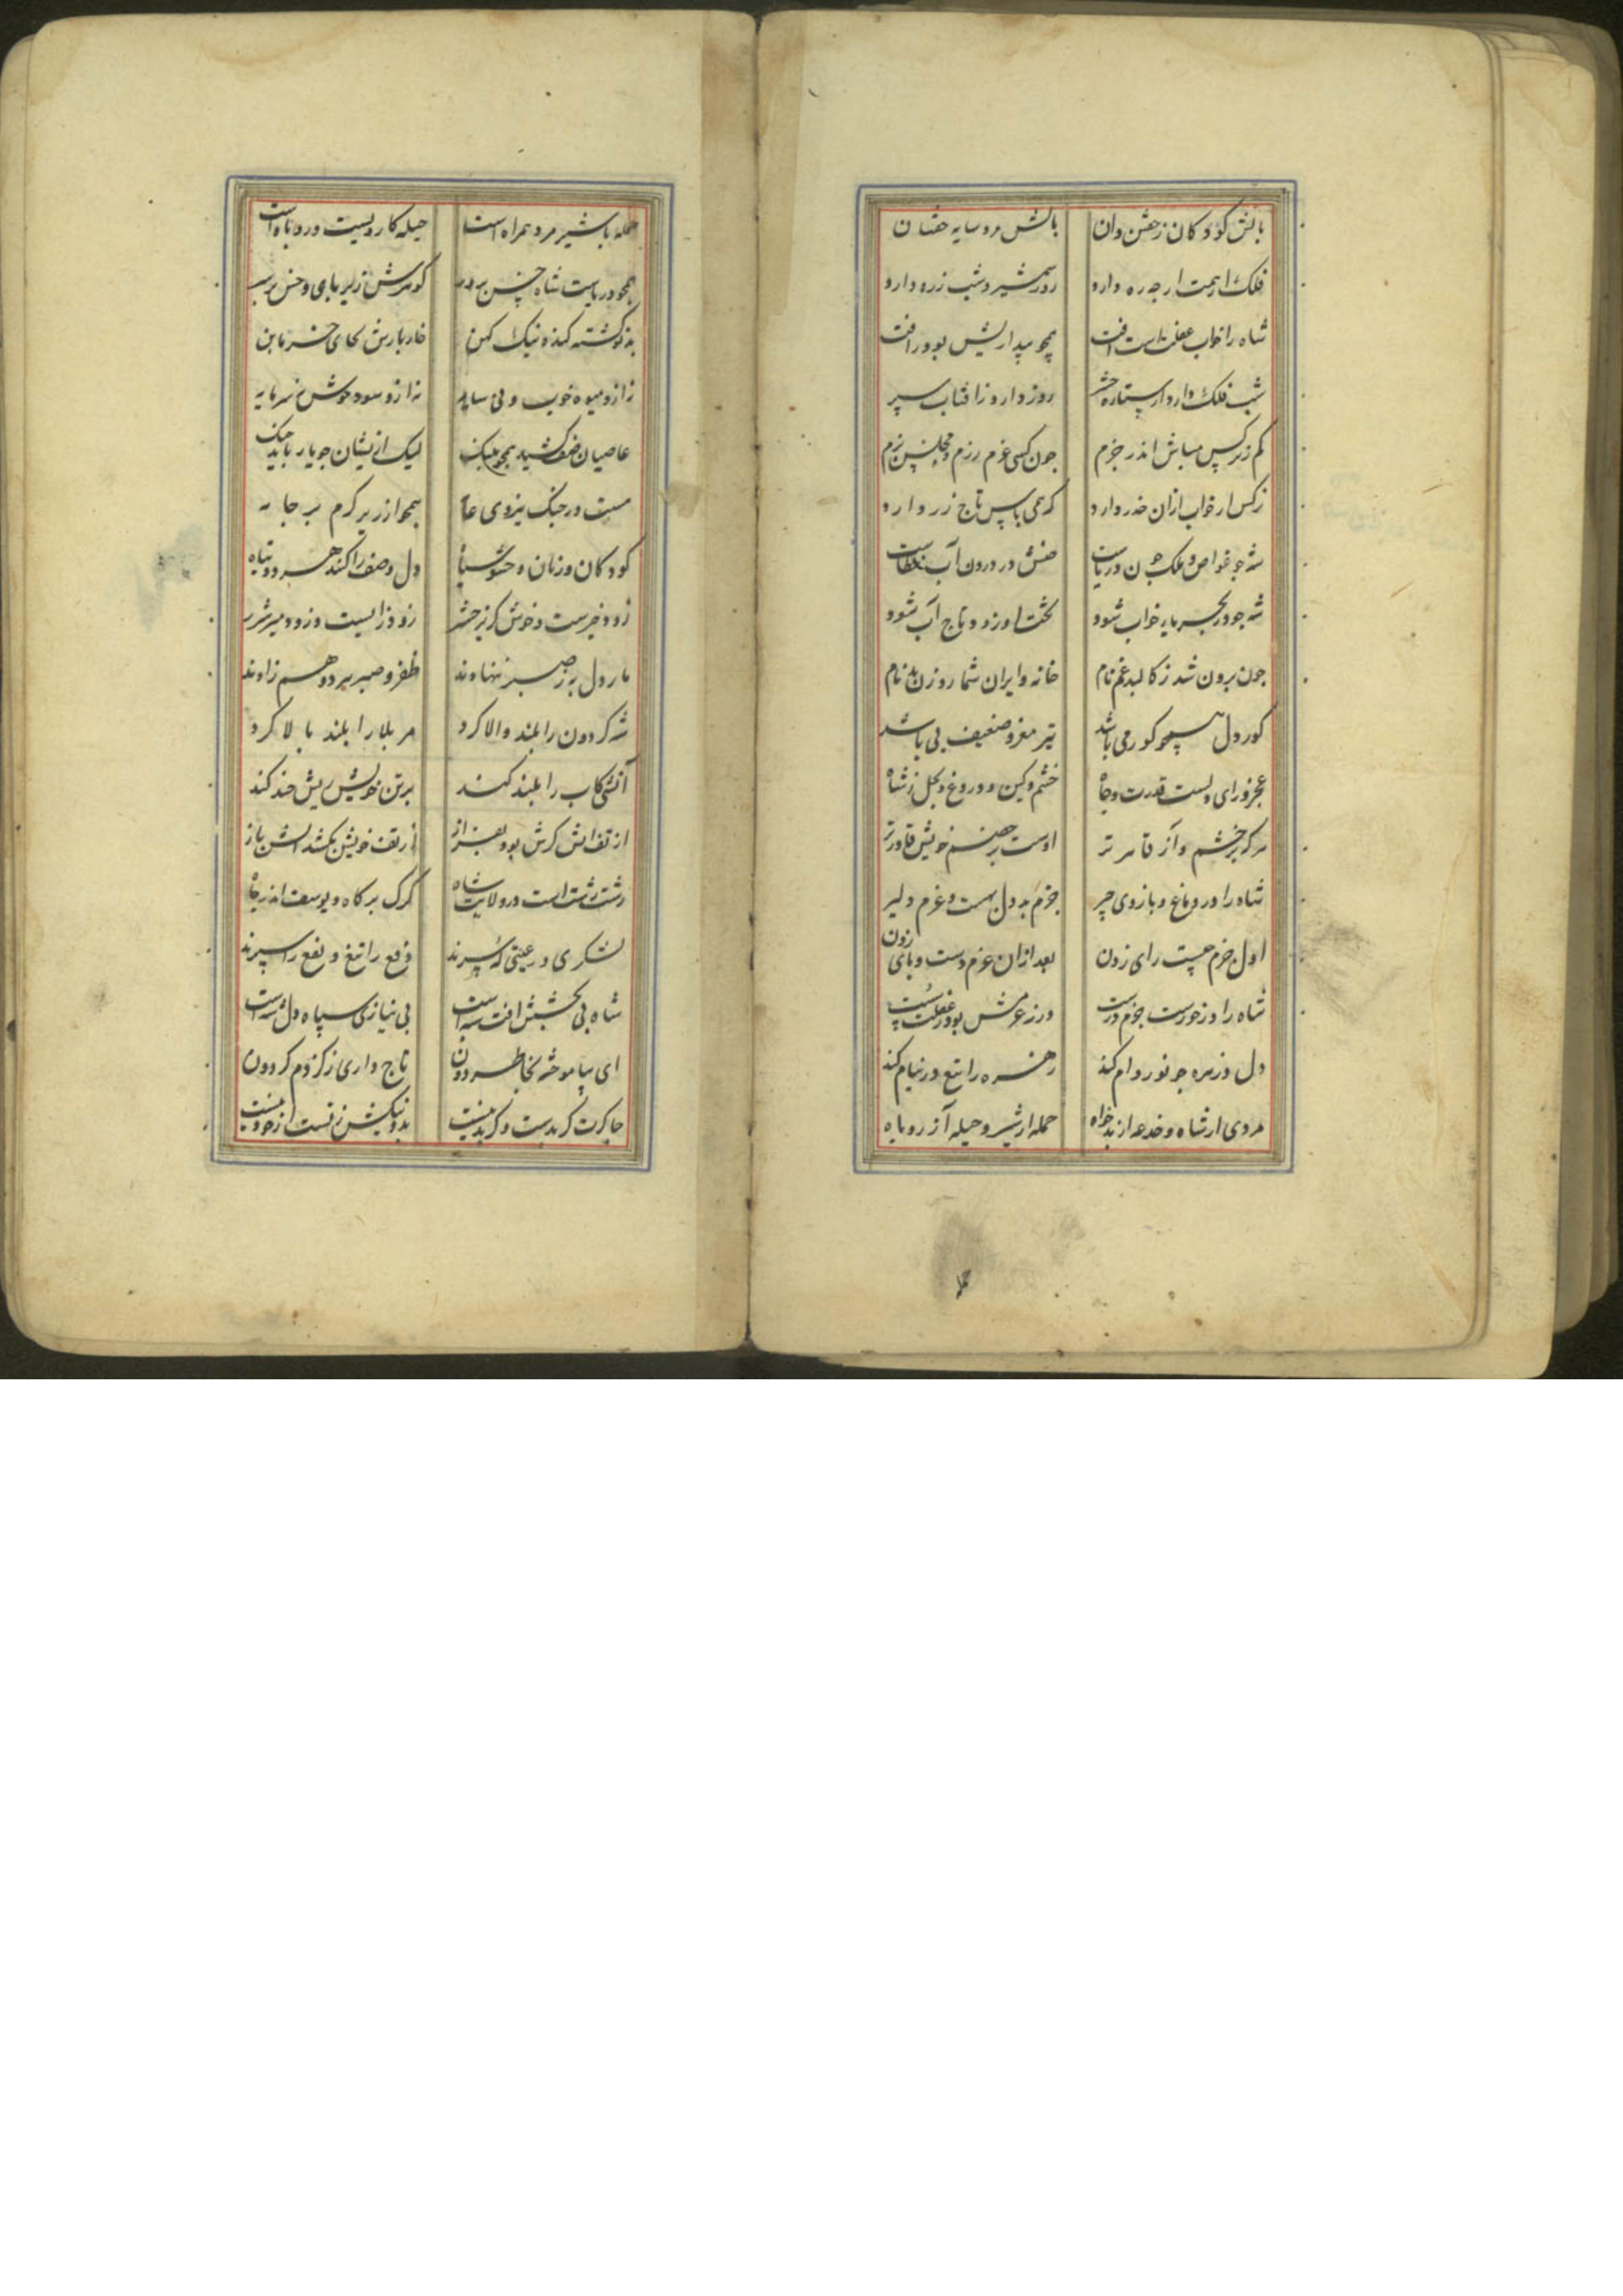 بالش کودکان ز خفتن دان بالش مرد سایه خفتان
فلک ار همت ار چه ره دارد روز شمشیر و شب زره دارد
شاه را خواب غفلت است آفت همچو بیداریش بود رافت
شب فلک دارد از ستاره حشر روز دارد ز آفتاب سپر
کم ز نرکس مباش اندر حزم چون کنی عزم رزم و مجلس بزم
نرکس از خواب ازان حذر دارد که همی پاس تاج زر دارد
شه چو غواص و ملک چون دریاست خفتنش در درون آب خطاست
شه چو در بحر مایه خواب شود تختش اورند و تاج آب شود
چون برون شد ز کالبد غم نام خانه ویران شمار و زن بدنام
کوردل همچو کور می باشد تیز مغز و ضعیف پی باشد
عجز و رای ولیست قدرت و جاه خشم و کین و دروغ و بخل ز شاه
هر که بر خشم و آز قاهرتر اوست بر خصم خویش قادرتر
شاه را در دماغ و بازوی چیر حزم بددل بهست و عزم دلیر
اول حزم چیست رای زدن بعد ازان عزم دست و پای زدن
شاه را در خورست حزم درست ورنه عزمش بود ز غفلت سست
دل در زهره چو نور وام کند زهره را تیغ در نیام کند
مردی از شاه و خدعه از بدخواه حمله از شیر و حیله از روباه
حمله با شیر مرد همراه است حیله کار زنیست و روباه است
همچو دریاست شاه خس پرور کوهرش زیر پای و خس بر سر
بد کشته کنده نیک کهن خار بارش بجای خرمابن
نه ازو میوه خوب و نی سایه نه ازو سود خوش نه سرمایه
عاصیان صف کشیده همچو پلنک لیک ازیشان چو یار باید جنک
مست در جنک نیروی عام همچو ازریز کرم بر جامه
کودکان و زنان و حشو سپاه دل و صف را کنند هر دو تباه
زود خیرست و خوش کریز حشر زود زایست و زود میر شرر
مار دل بر ز صبر ننهادند ظفر و صبر هر دو هم زادند
شه که دون را بلند و والا کرد مر بلا را بلند بالا کرد
آتشی کاب را بلند کند بر تن خویش ریش خند کند
از تف آتش کرش بود بفراز از تف خویش بکشد آتش باز
زشت زشت است در ولایت شاه کرک بر کاه و یوسف اندر چاه
لشکری و رعیتی که سپرند دفع را تیغ و نفع را سپرند
شاه بی بخشش آفت سپه است بی نیازی سپاه دل شه است
ای بیاموخته بخاطر دون تاج داری ز کزدم کردون
چاکرت کر بدست و کر بد نیست بد و نیکیش ز تست از خود نیست